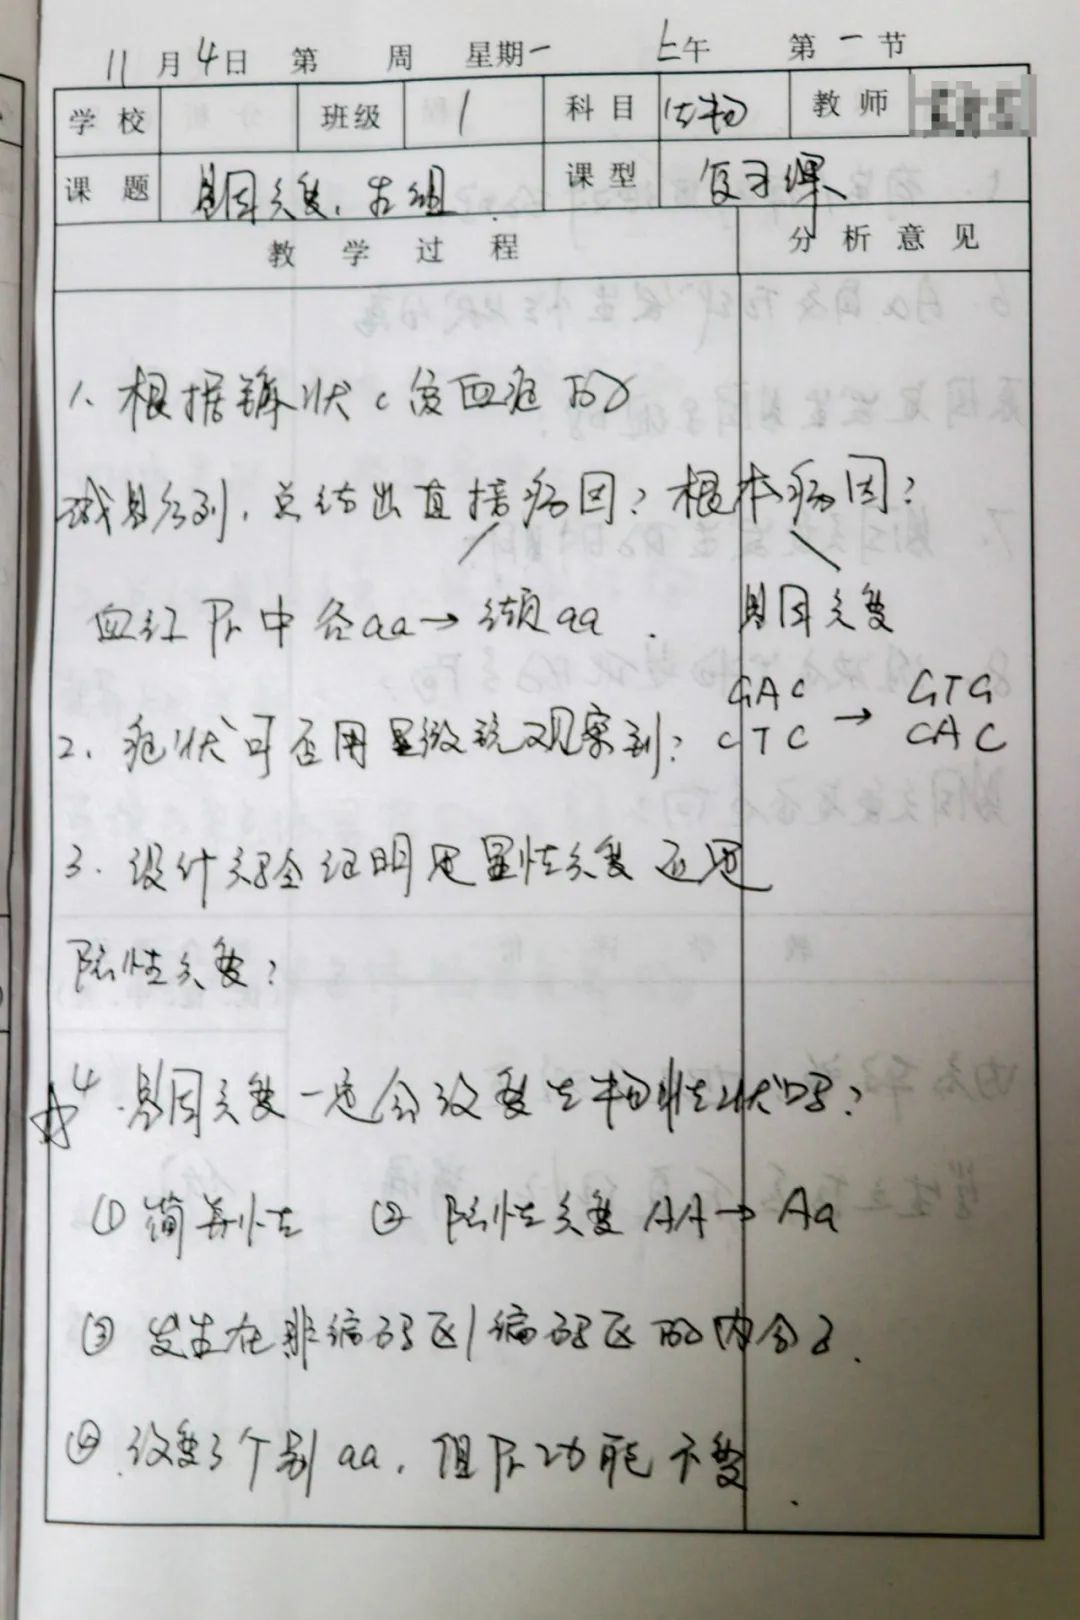 11月4日 第 周 星期一 上午 第一节
学校 班级 1 科目 生物 教师
课题 基因突变、重组 课型 复习课
教学过程 分析意见
1、根据镰状c贫血症的
碱基序列,总结出直接病因?根本病因?
血红Pr中谷aa→缬aa. 基因突变
GAG CTC → GTG CAC
2、症状可否用显微镜观察到?
3、设计实验证明是显性突变还是
隐性突变?
☆4.基因突变一定会改变生物性状吗?
①简并性 ②隐性突变AA→Aa
③发生在非编码区/编码区的内含子.
④改变了个别aa,但Pr功能不变.